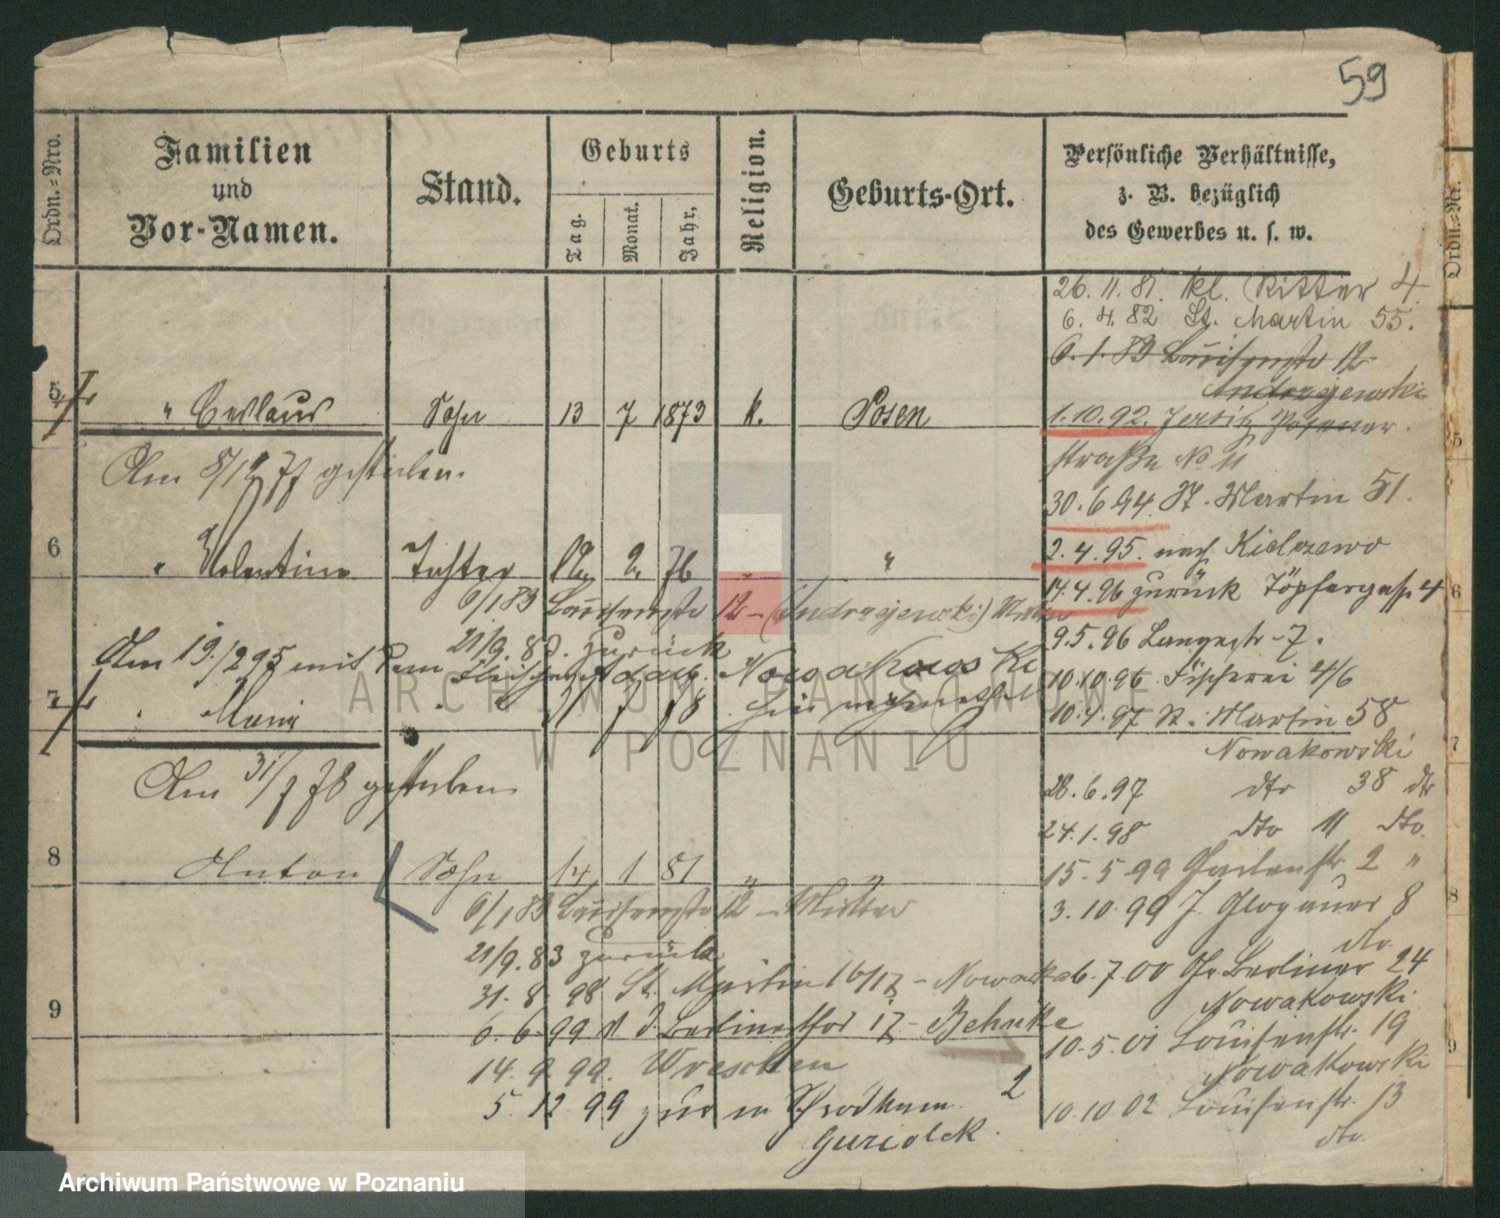 59
Ordn.-Nro.
Familien
und
Vor-Namen.
Stand.
Geburts
Tag.
Monat.
Jahr.
Religion.
Geburts-Ort.
Persönliche Verhältnisse,
z. B. bezüglich
des Gewerbes u. s. w.
Ordn.-Nr.
26. 11. 81. kl. Ritter 4.
6. 4. 82 St. Martin 55.
6. 1. 83 Louisenstr 12
Andrzejewski
5 " Ceslaus Sohn 13 7 1873 k. Posen
1. 10. 92. Jersitz Posener
straße No 11
Am 8/12 77 gestorben.
30. 6. 94. St. Martin 51.
6 " Valentine Tochter 2 76 "
2. 4. 95. nach
14. 4. 96 zurück Töpfergasse 4
6/1 83 Louisenstr 12 – (Andrzejewski) Mutter
9. 5. 96 Langestr 7.
21/9. 83. zurück
Am 19./2 95 mit dem Nowakowski
10. 10. 96 Fischerei 4/6
7 " Maria 7 78
10. 4. 97 St. Martin 58
Nowakowski
Am 31/7 78 gestorben
28. 6. 97 dto 38 dto
24. 1. 98 dto 11 dto.
8 Anton Sohn 14 1 81 " "
15. 5. 99 Gartenstr. 2 "
6/1 83 Louisenstr 12 – Mutter
3. 10. 99 Glogauer 8
dto.
21/9. 83 zurück
31. 8. 98 St. Martin 16/17 – Nowack
6. 7. 00 Gr. Berliner 24
Nowakowski.
9
6. 6. 99 Berlinerthor 17 – Behnke
10. 5. 01 Louisenstr. 19
Nowakowski
14. 9. 99. Wreschen
5. 12 99 zur 2
10. 10 02 Louisenstr. 13
dto.
5
6
7
8
9
ARCHIWUM PAŃSTWOWE
W POZNANIU
Archiwum Państwowe w Poznaniu